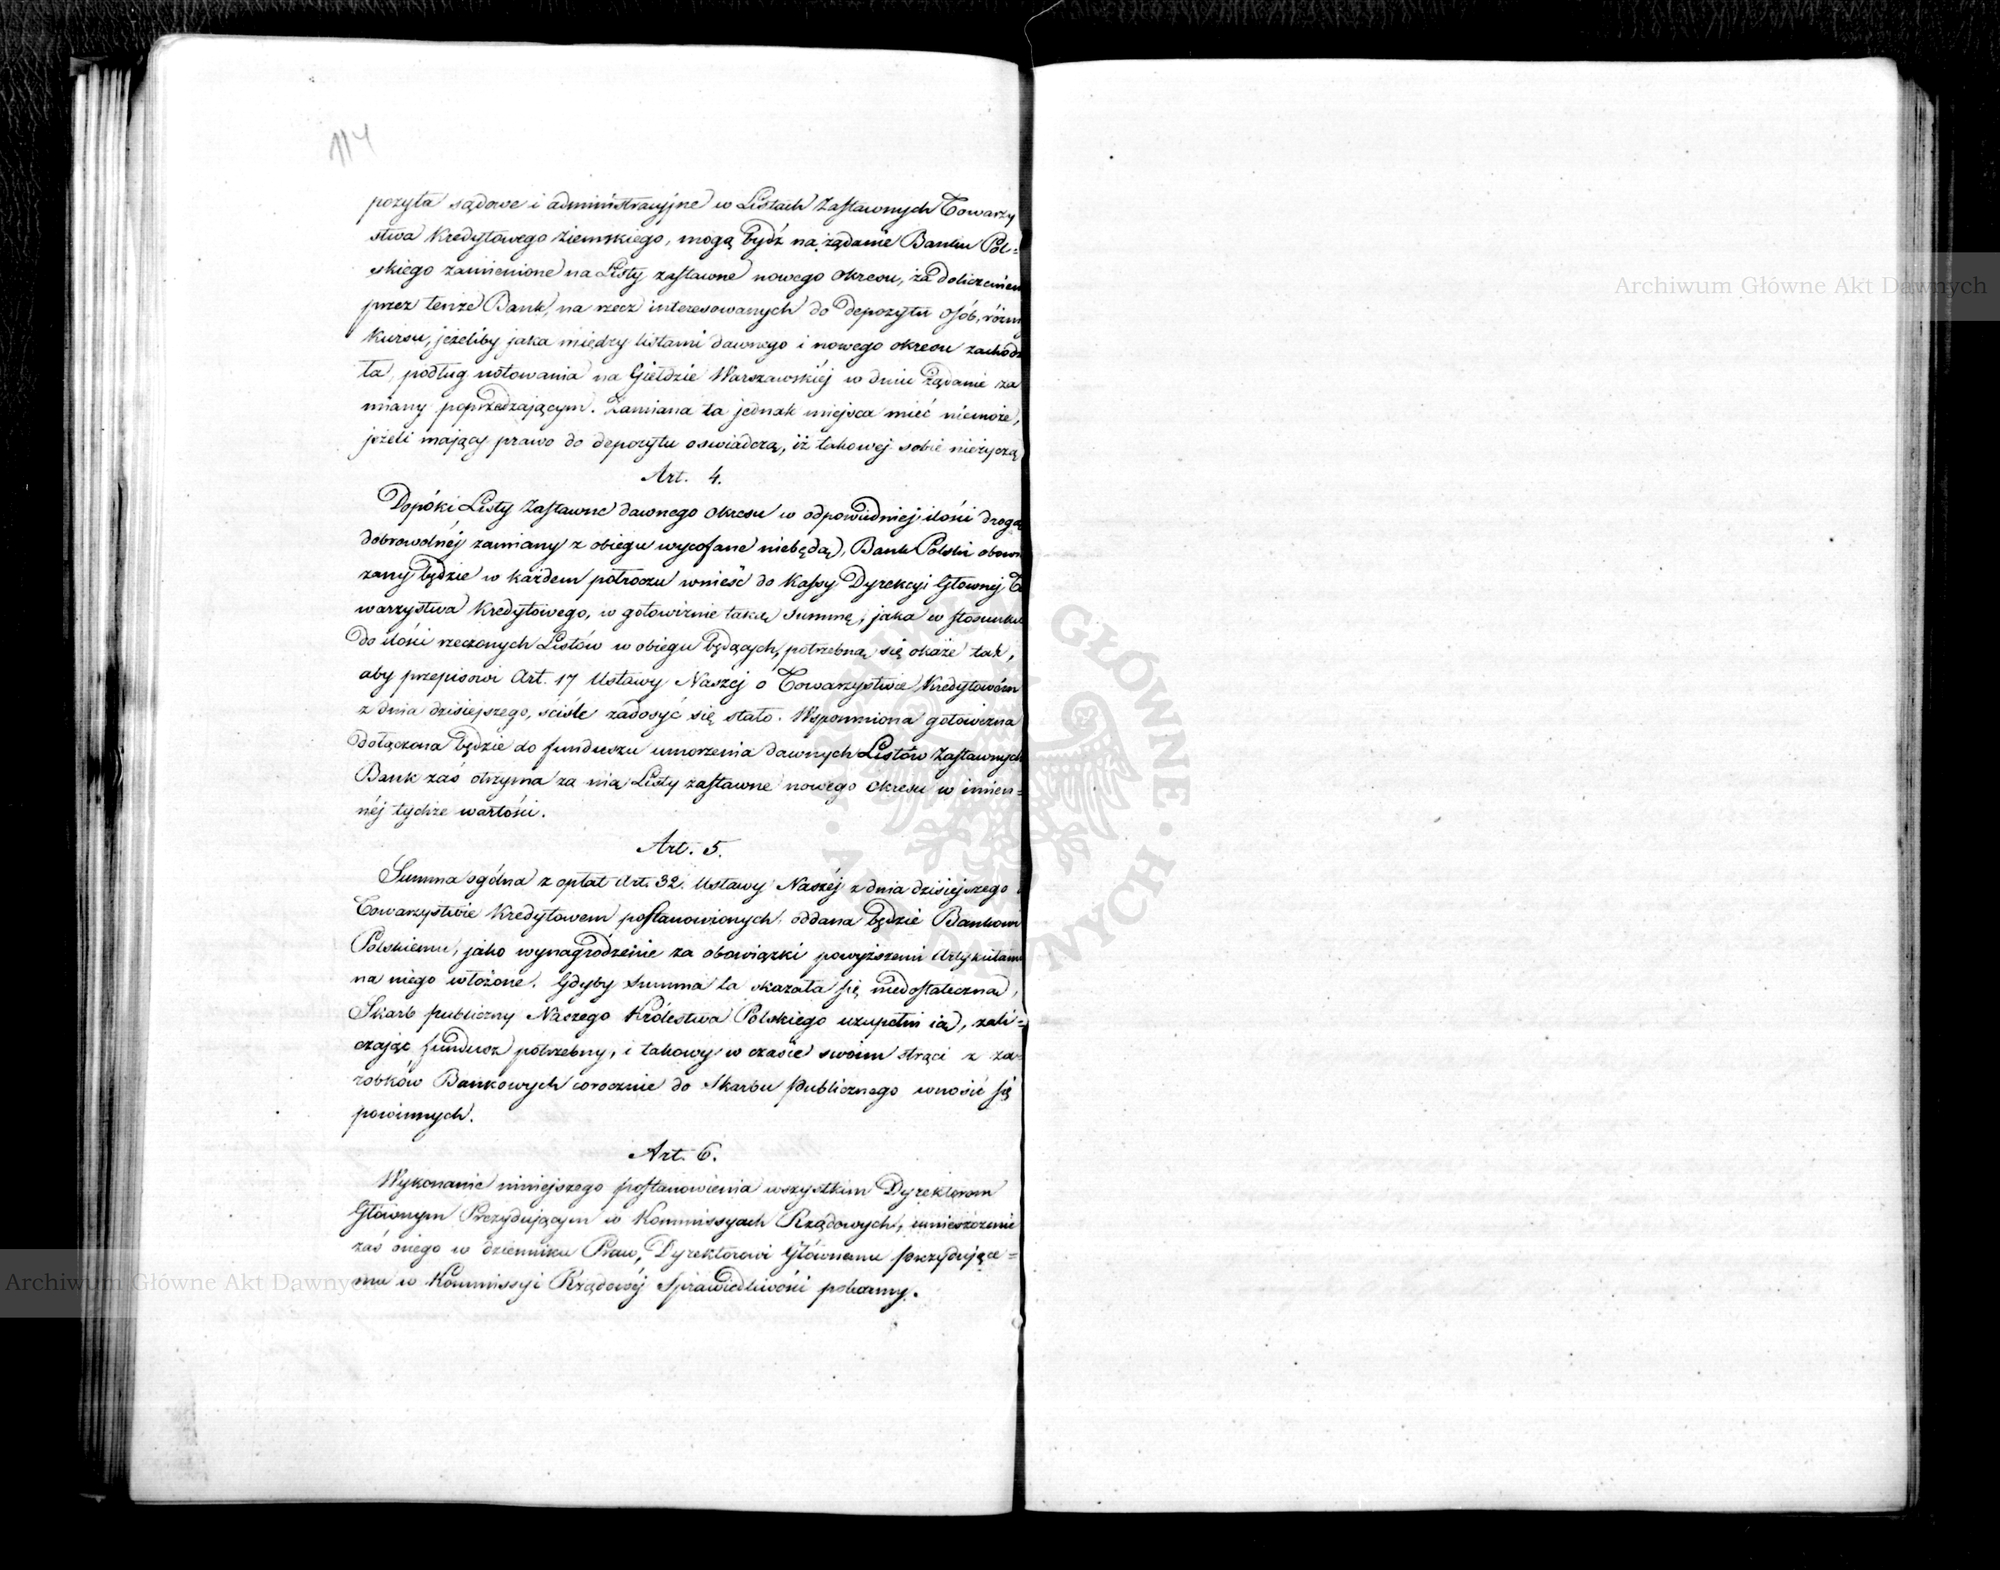 114
pozyta sądowe i administracyjne w Listach Zastawnych Towarzy
stwa Kredytowego Ziemskiego, mogą bydź na żądanie Banku Pol=
skiego zamienione na Listy zastawne nowego Okresu, za doliczeniem
przez tenże Bank, na rzecz interesowanych do depozytu osób, różni
Kursu, jeżeliby jaka między listami dawnego i nowego okresu zachodzi
ła, podług notowania na Giełdzie Warszawskiéj w dniu żądanie za
miany poprzedzającym. Zamiana ta jednak miejsca mieć niemoże,
jeżeli mający prawo do depozytu oswiadczą, iż takowej sobie nieżyczą
Art. 4.
Dopóki Listy Zastawne dawnego Okresu w odpowiedniej ilości drogą
dobrowolnéj zamiany z obiegu wycofane niebędą, Bank Polski obowią
zany będzie w każdem półroczu wnieść do Kassy Dyrekcyi Głównej To
warzystwa Kredytowego, w gotowiznie taką Summę, jaka w stosunku
do ilości rzeczonych Listów w obiegu będących, potrzebną się okaże tak,
aby przepisowi Art. 17 Ustawy Naszej o Towarzystwie Kredytowém
z dnia dzisiejszego, sciśle zadosyć się stało. Wspomniona gotowizna
dołączona będzie do funduszu umorzenia dawnych Listów Zastawnych
Bank zaś otrzyma za nią Listy zastawne nowego Okresu w imien=
néj tychże wartości.
Art. 5.
Summa ogólna z opłat Art. 32. Ustawy Naszéj z dnia dzisiejszego o
Towarzystwie Kredytowem postanowionych, oddana będzie Bankowi
Polskiemu, jako wynagrodzenie za obowiązki powyższemi Artykułami
na niego włożone. Gdyby summa ta okazała się niedostateczną,
Skarb publiczny Naszego Królestwa Polskiego uzupełni ią, zali=
czając fundusz potrzebny, i takowy w czasie swoim strąci z za=
robków Bankowych corocznie do Skarbu Publicznego wnosić się
powinnych.
Art. 6.
Wykonanie niniejszego postanowienia wszystkim Dyrektorom
Głównym Prezydującym w Kommissyach Rządowych, umieszczenie
zaś onego w dzienniku Praw, Dyrektorowi Głównemu prezydujące=
mu w Kommissyi Rządowéj Sprawiedliwości polecamy.
Archiwum Główne Akt Dawnych
Archiwum Główne Akt Dawnych